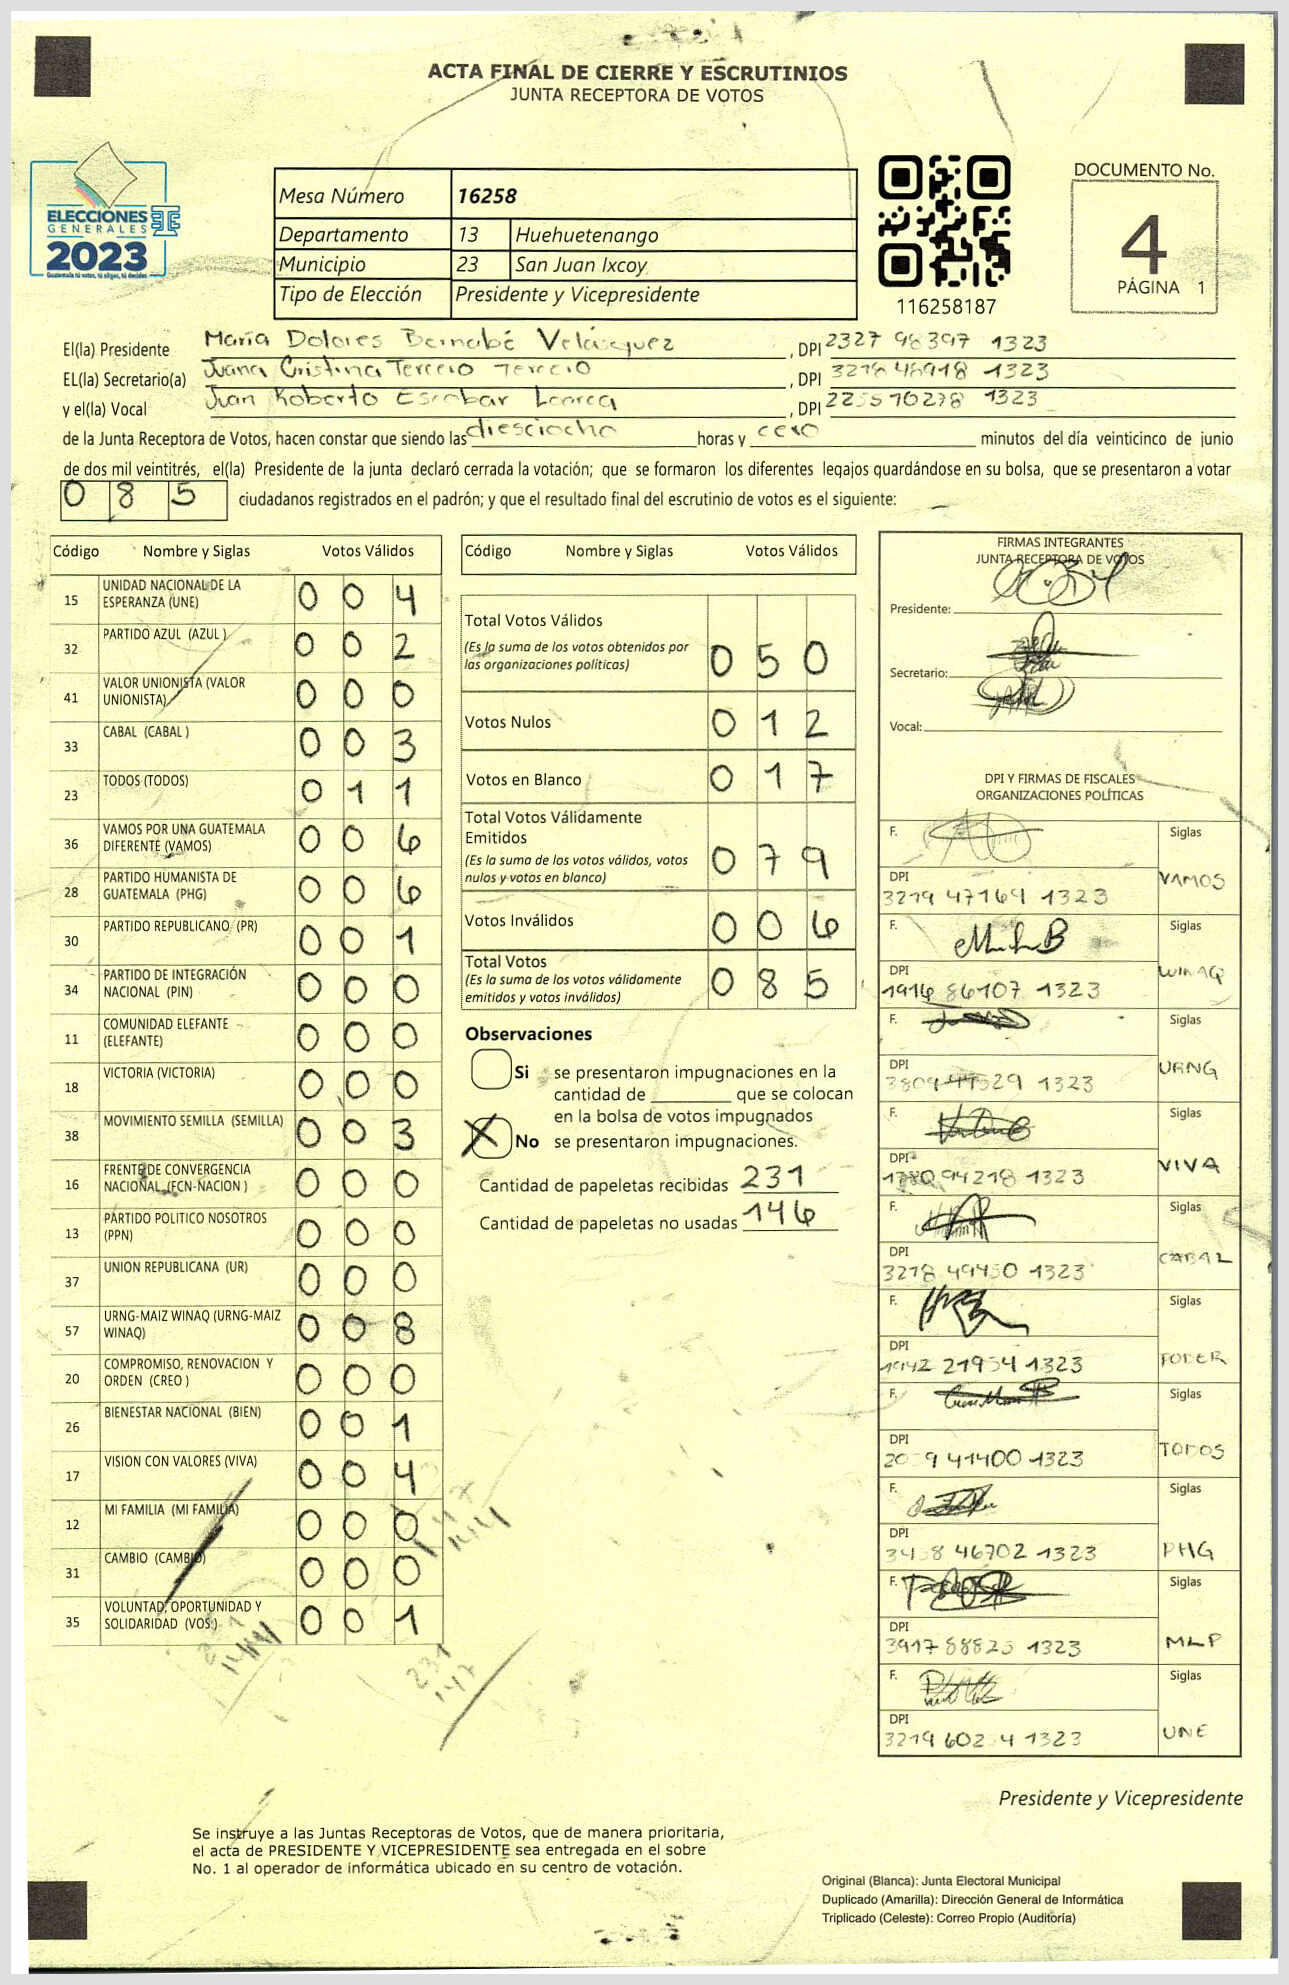 ACTA FINAL DE CIERRE Y ESCRUTINIOS
JUNTA RECEPTORA DE VOTOS
ELECCIONES
GENERALES
2023
Guatemala tú votas, tú eliges, tú decides
Mesa Número 16258
Departamento 13 Huehuetenango
Municipio 23 San Juan Ixcoy
Tipo de Elección Presidente y Vicepresidente
116258187
DOCUMENTO No.
4
PÁGINA 1
El(la) Presidente María Dolores Bernabé Velásquez , DPI 2327 98397 1323
EL(la) Secretario(a) Juana Cristina Tercero Tercero , DPI 3218 48918 1323
y el(la) Vocal Juan Roberto Escobar , DPI 1323
de la Junta Receptora de Votos, hacen constar que siendo las diesciocho horas y cero minutos del día veinticinco de junio
de dos mil veintitrés, el(la) Presidente de la junta declaró cerrada la votación; que se formaron los diferentes legajos quardándose en su bolsa, que se presentaron a votar
085 ciudadanos registrados en el padrón; y que el resultado final del escrutinio de votos es el siguiente:
Código Nombre y Siglas Votos Válidos
15 UNIDAD NACIONAL DE LA ESPERANZA (UNE) 0 0 4
32 PARTIDO AZUL (AZUL ) 0 0 2
41 VALOR UNIONISTA (VALOR UNIONISTA) 0 0 0
33 CABAL (CABAL ) 0 0 3
23 TODOS (TODOS) 0 1 1
36 VAMOS POR UNA GUATEMALA DIFERENTE (VAMOS) 0 0 6
28 PARTIDO HUMANISTA DE GUATEMALA (PHG) 0 0 6
30 PARTIDO REPUBLICANO (PR) 0 0 1
34 PARTIDO DE INTEGRACIÓN NACIONAL (PIN) 0 0 0
11 COMUNIDAD ELEFANTE (ELEFANTE) 0 0 0
18 VICTORIA (VICTORIA) 0 0 0
38 MOVIMIENTO SEMILLA (SEMILLA) 0 0 3
16 FRENTE DE CONVERGENCIA NACIONAL (FCN-NACION ) 0 0 0
13 PARTIDO POLITICO NOSOTROS (PPN) 0 0 0
37 UNION REPUBLICANA (UR) 0 0 0
57 URNG-MAIZ WINAQ (URNG-MAIZ WINAQ) 0 0 8
20 COMPROMISO, RENOVACION Y ORDEN (CREO ) 0 0 0
26 BIENESTAR NACIONAL (BIEN) 0 0 1
17 VISION CON VALORES (VIVA) 0 0 4
12 MI FAMILIA (MI FAMILIA) 0 0 0
31 CAMBIO (CAMBIO) 0 0 0
35 VOLUNTAD, OPORTUNIDAD Y SOLIDARIDAD (VOS ) 0 0 1
231
147
Código Nombre y Siglas Votos Válidos
Total Votos Válidos
(Es la suma de los votos obtenidos por
las organizaciones politicas) 0 5 0
Votos Nulos 0 1 2
Votos en Blanco 0 1 7
Total Votos Válidamente
Emitidos
(Es la suma de los votos válidos, votos
nulos y votos en blanco) 0 7 9
Votos Inválidos 0 0 6
Total Votos
(Es la suma de los votos válidamente
emitidos y votos inválidos) 0 8 5
Observaciones
Si se presentaron impugnaciones en la
cantidad de ________ que se colocan
en la bolsa de votos impugnados
X No se presentaron impugnaciones.
Cantidad de papeletas recibidas 231
Cantidad de papeletas no usadas 146
FIRMAS INTEGRANTES
JUNTA RECEPTORA DE VOTOS
Presidente:
Secretario:
Vocal:
DPI Y FIRMAS DE FISCALES
ORGANIZACIONES POLÍTICAS
F. Siglas
DPI VAMOS
3219 47169 1323
F. Siglas
DPI WINAQ
1916 86107 1323
F. Siglas
DPI URNG
1323
F. Siglas
DPI VIVA
94218 1323
F. Siglas
DPI CABAL
3278 49450 1323
F. Siglas
DPI PODER
21954 1323
F. Siglas
DPI TODOS
41400 1323
F. Siglas
DPI PHG
46702 1323
F. Siglas
DPI MLP
3917 88825 1323
F. Siglas
DPI UNE
3219 1323
Presidente y Vicepresidente
Se instruye a las Juntas Receptoras de Votos, que de manera prioritaria,
el acta de PRESIDENTE Y VICEPRESIDENTE sea entregada en el sobre
No. 1 al operador de informática ubicado en su centro de votación.
Original (Blanca): Junta Electoral Municipal
Duplicado (Amarilla): Dirección General de Informática
Triplicado (Celeste): Correo Propio (Auditoría)